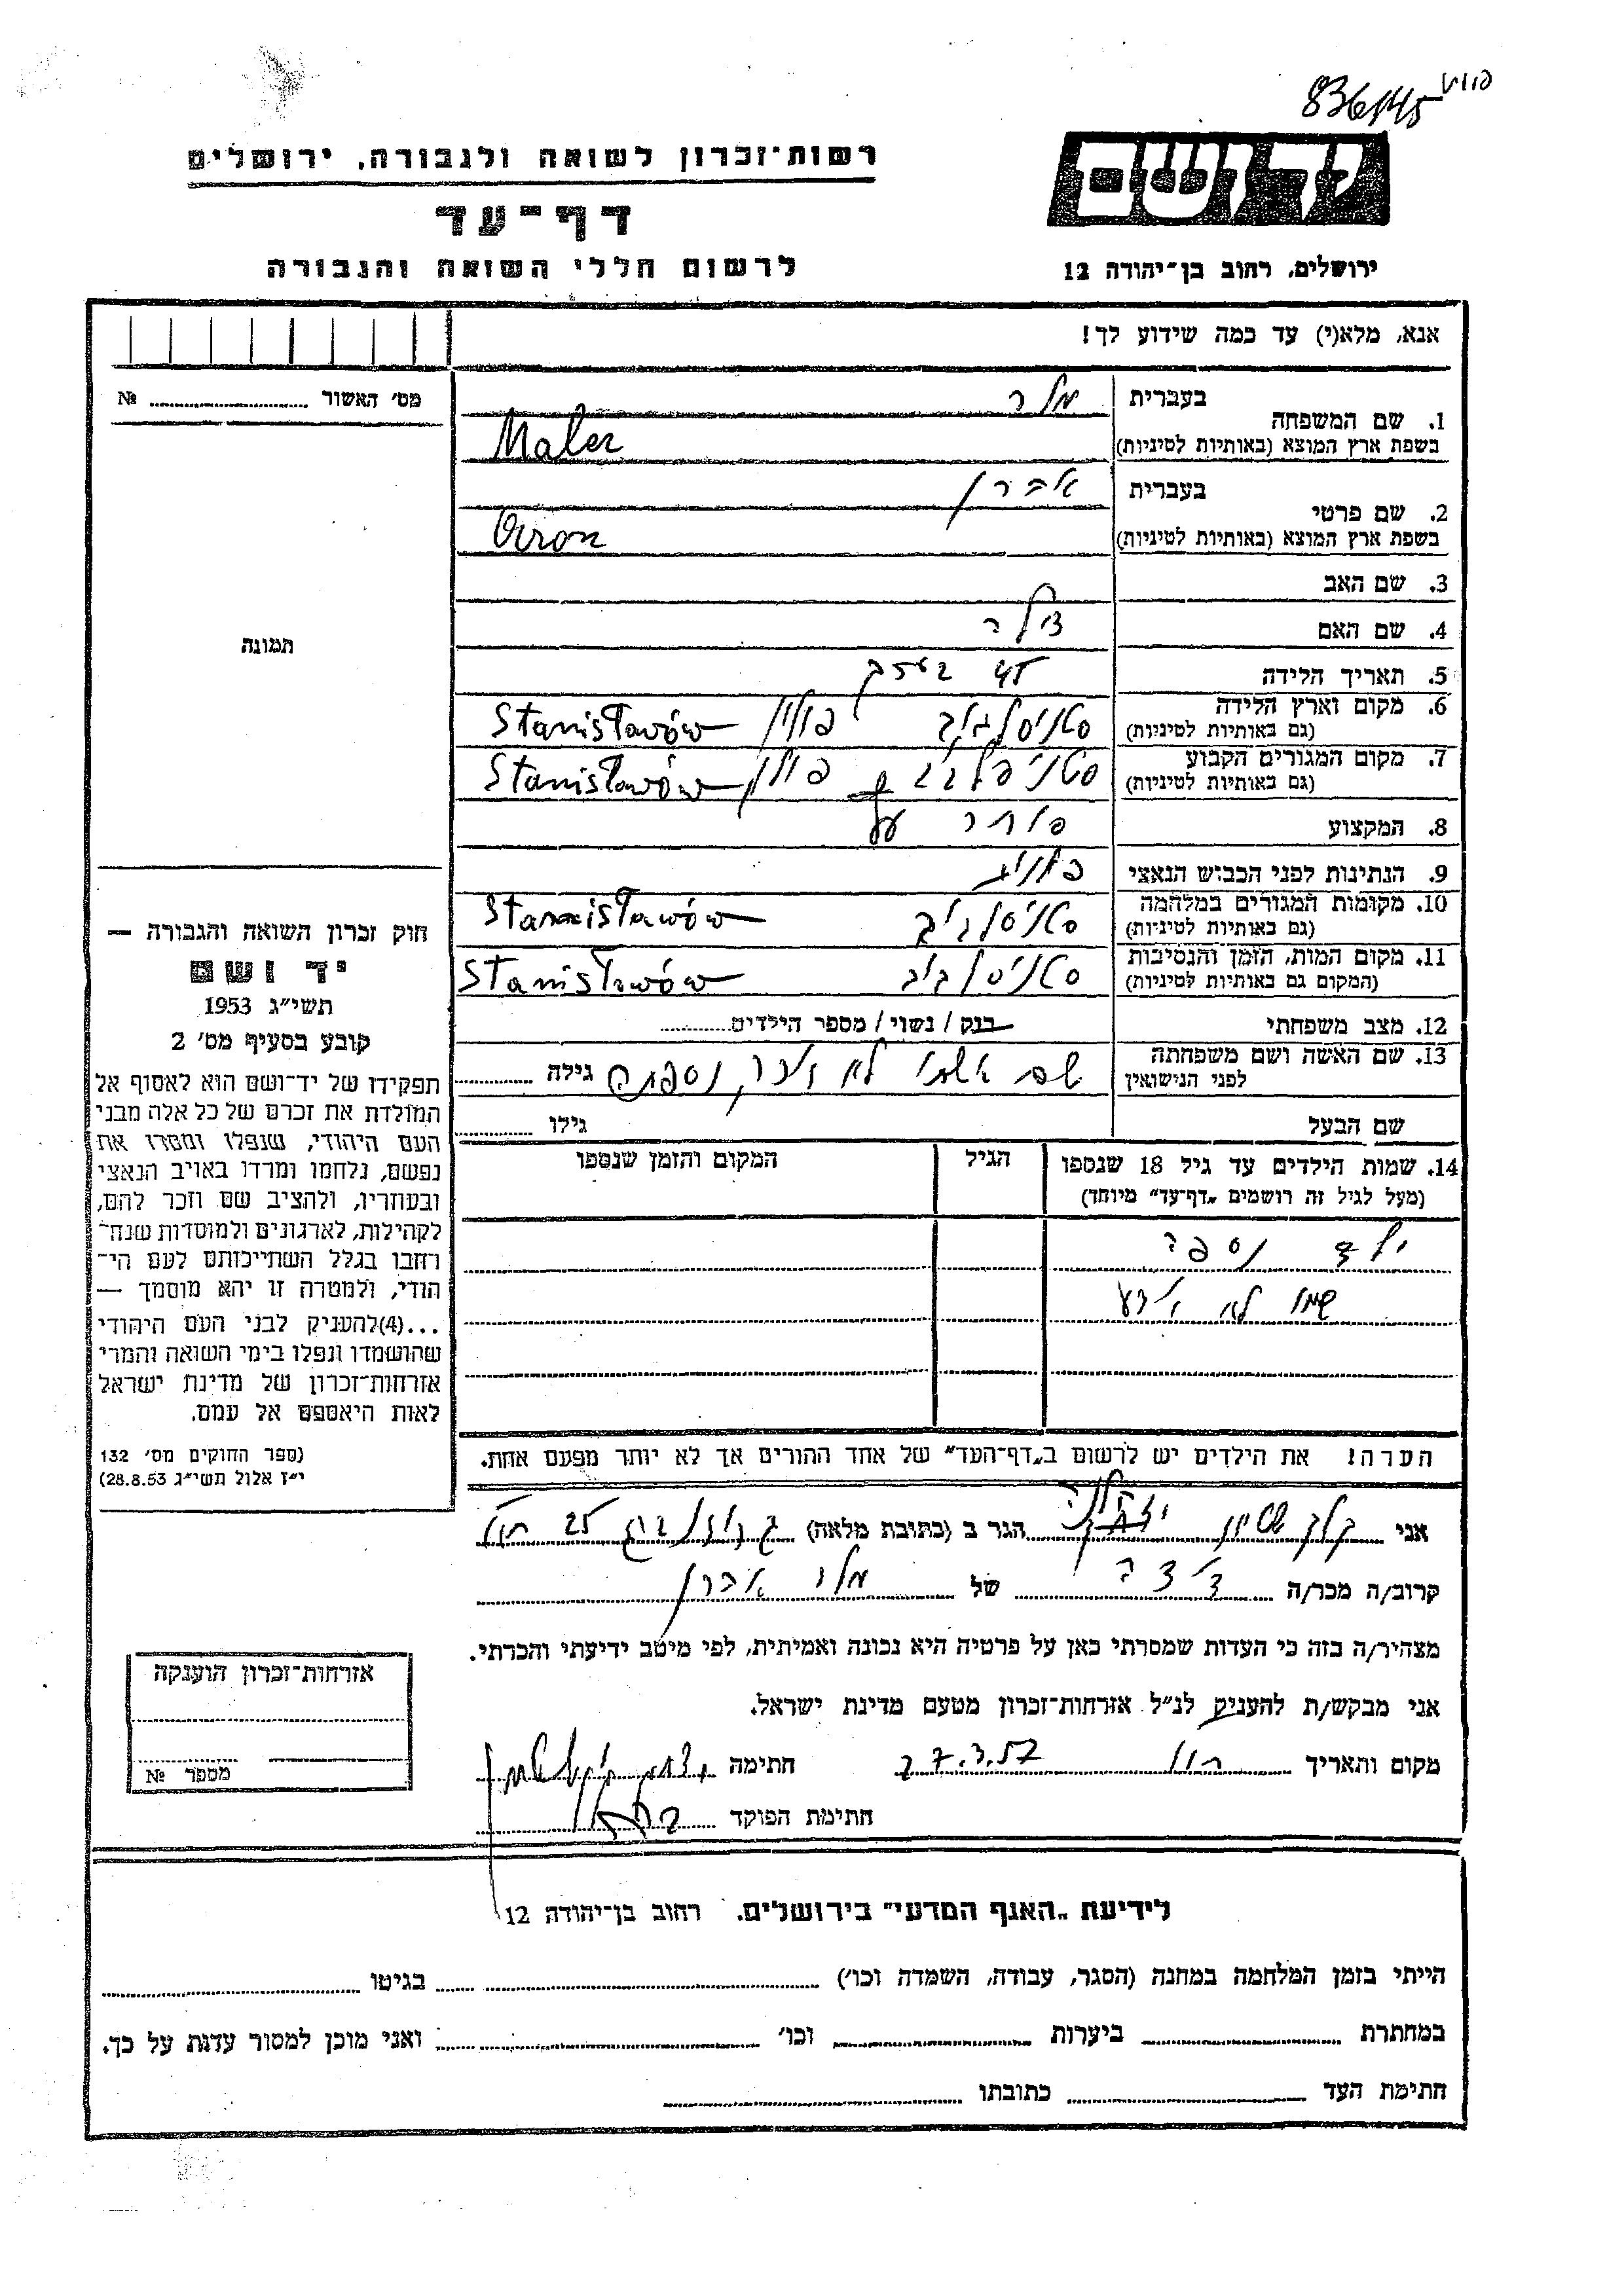 836/145
יד ושם
רשות־זכרון לשואה ולגבורה, ירושלים
דף־עד
לרשום חללי השואה והגבורה
ירושלים, רחוב בן־יהודה 12
אנא, מלא(י) עד כמה שידוע לך!
מס׳ האשור № 
1. שם המשפחה
בעברית מלר
בשפת ארץ המוצא (באותיות לטיניות) Maler
2. שם פרטי
בעברית אהרן
בשפת ארץ המוצא (באותיות לטיניות) Aron
3. שם האב
4. שם האם
5. תאריך הלידה 45
6. מקום וארץ הלידה סטניסלבוב פולין Stanisławów
(גם באותיות לטיניות)
7. מקום המגורים הקבוע סטניסלבוב פולין Stanisławów
(גם באותיות לטיניות)
8. המקצוע סוחר עץ
9. הנתינות לפני הכבוש הנאצי פולנית
10. מקומות המגורים במלחמה סטניסלבוב Stannisławów
(גם באותיות לטיניות)
11. מקום המות, הזמן והנסיבות סטניסלבוב Stanisławów
(המקום גם באותיות לטיניות)
12. מצב משפחתי רווק / נשוי / מספר הילדים
13. שם האשה ושם משפחתה שם אשתו לא זוכר, נספתה גילה
לפני הנישואין
שם הבעל גילו
14. שמות הילדים עד גיל 18 שנספו הגיל המקום והזמן שנספו
(מעל לגיל זה רושמים „דף־עד” מיוחד)
ילד נספה
שמו לא ידוע
הערה! את הילדים יש לרשום ב„דף־העד” של אחד ההורים אך לא יותר מפעם אחת.
תמונה
חוק זכרון השואה והגבורה —
יד ושם
תשי״ג 1953
קובע בסעיף מס׳ 2
תפקידו של יד־ושם הוא לאסוף אל
המולדת את זכרם של כל אלה מבני
העם היהודי, שנפלו ומסרו את
נפשם, נלחמו ומרדו באויב הנאצי
ובעוזריו, ולהציב שם וזכר להם,
לקהילות, לארגונים ולמוסדות שנח־
רחבו בגלל השתייכותם לעם הי־
הודי, ולמטרה זו יהא מוסמך —
...(4)להעניק לבני העם היהודי
שהושמדו ונפלו בימי השואה והמרי
אזרחות־זכרון של מדינת ישראל
לאות היאספם אל עמם.
(ספר החוקים מס׳ 132
י״ז אלול תשי״ג 28.8.53)
אני הגר ב (כתובת מלאה) 25
קרוב/ה מכר/ה של מלר אהרן
מצהיר/ה בזה כי העדות שמסרתי כאן על פרטיה היא נכונה ואמיתית, לפי מיטב ידיעתי והכרתי.
אני מבקש/ת להעניק לנ״ל אזרחות־זכרון מטעם מדינת ישראל.
מקום ותאריך 27.3.57 חתימה
חתימת הפוקד
אזרחות־זכרון הוענקה
מספר №
לידיעת „האגף המדעי” בירושלים, רחוב בן־יהודה 12
הייתי בזמן המלחמה במחנה (הסגר, עבודה, השמדה וכו׳) בגיטו
במחתרת ביערות וכו׳ ואני מוכן למסור עדות על כך.
חתימת העד כתובתו